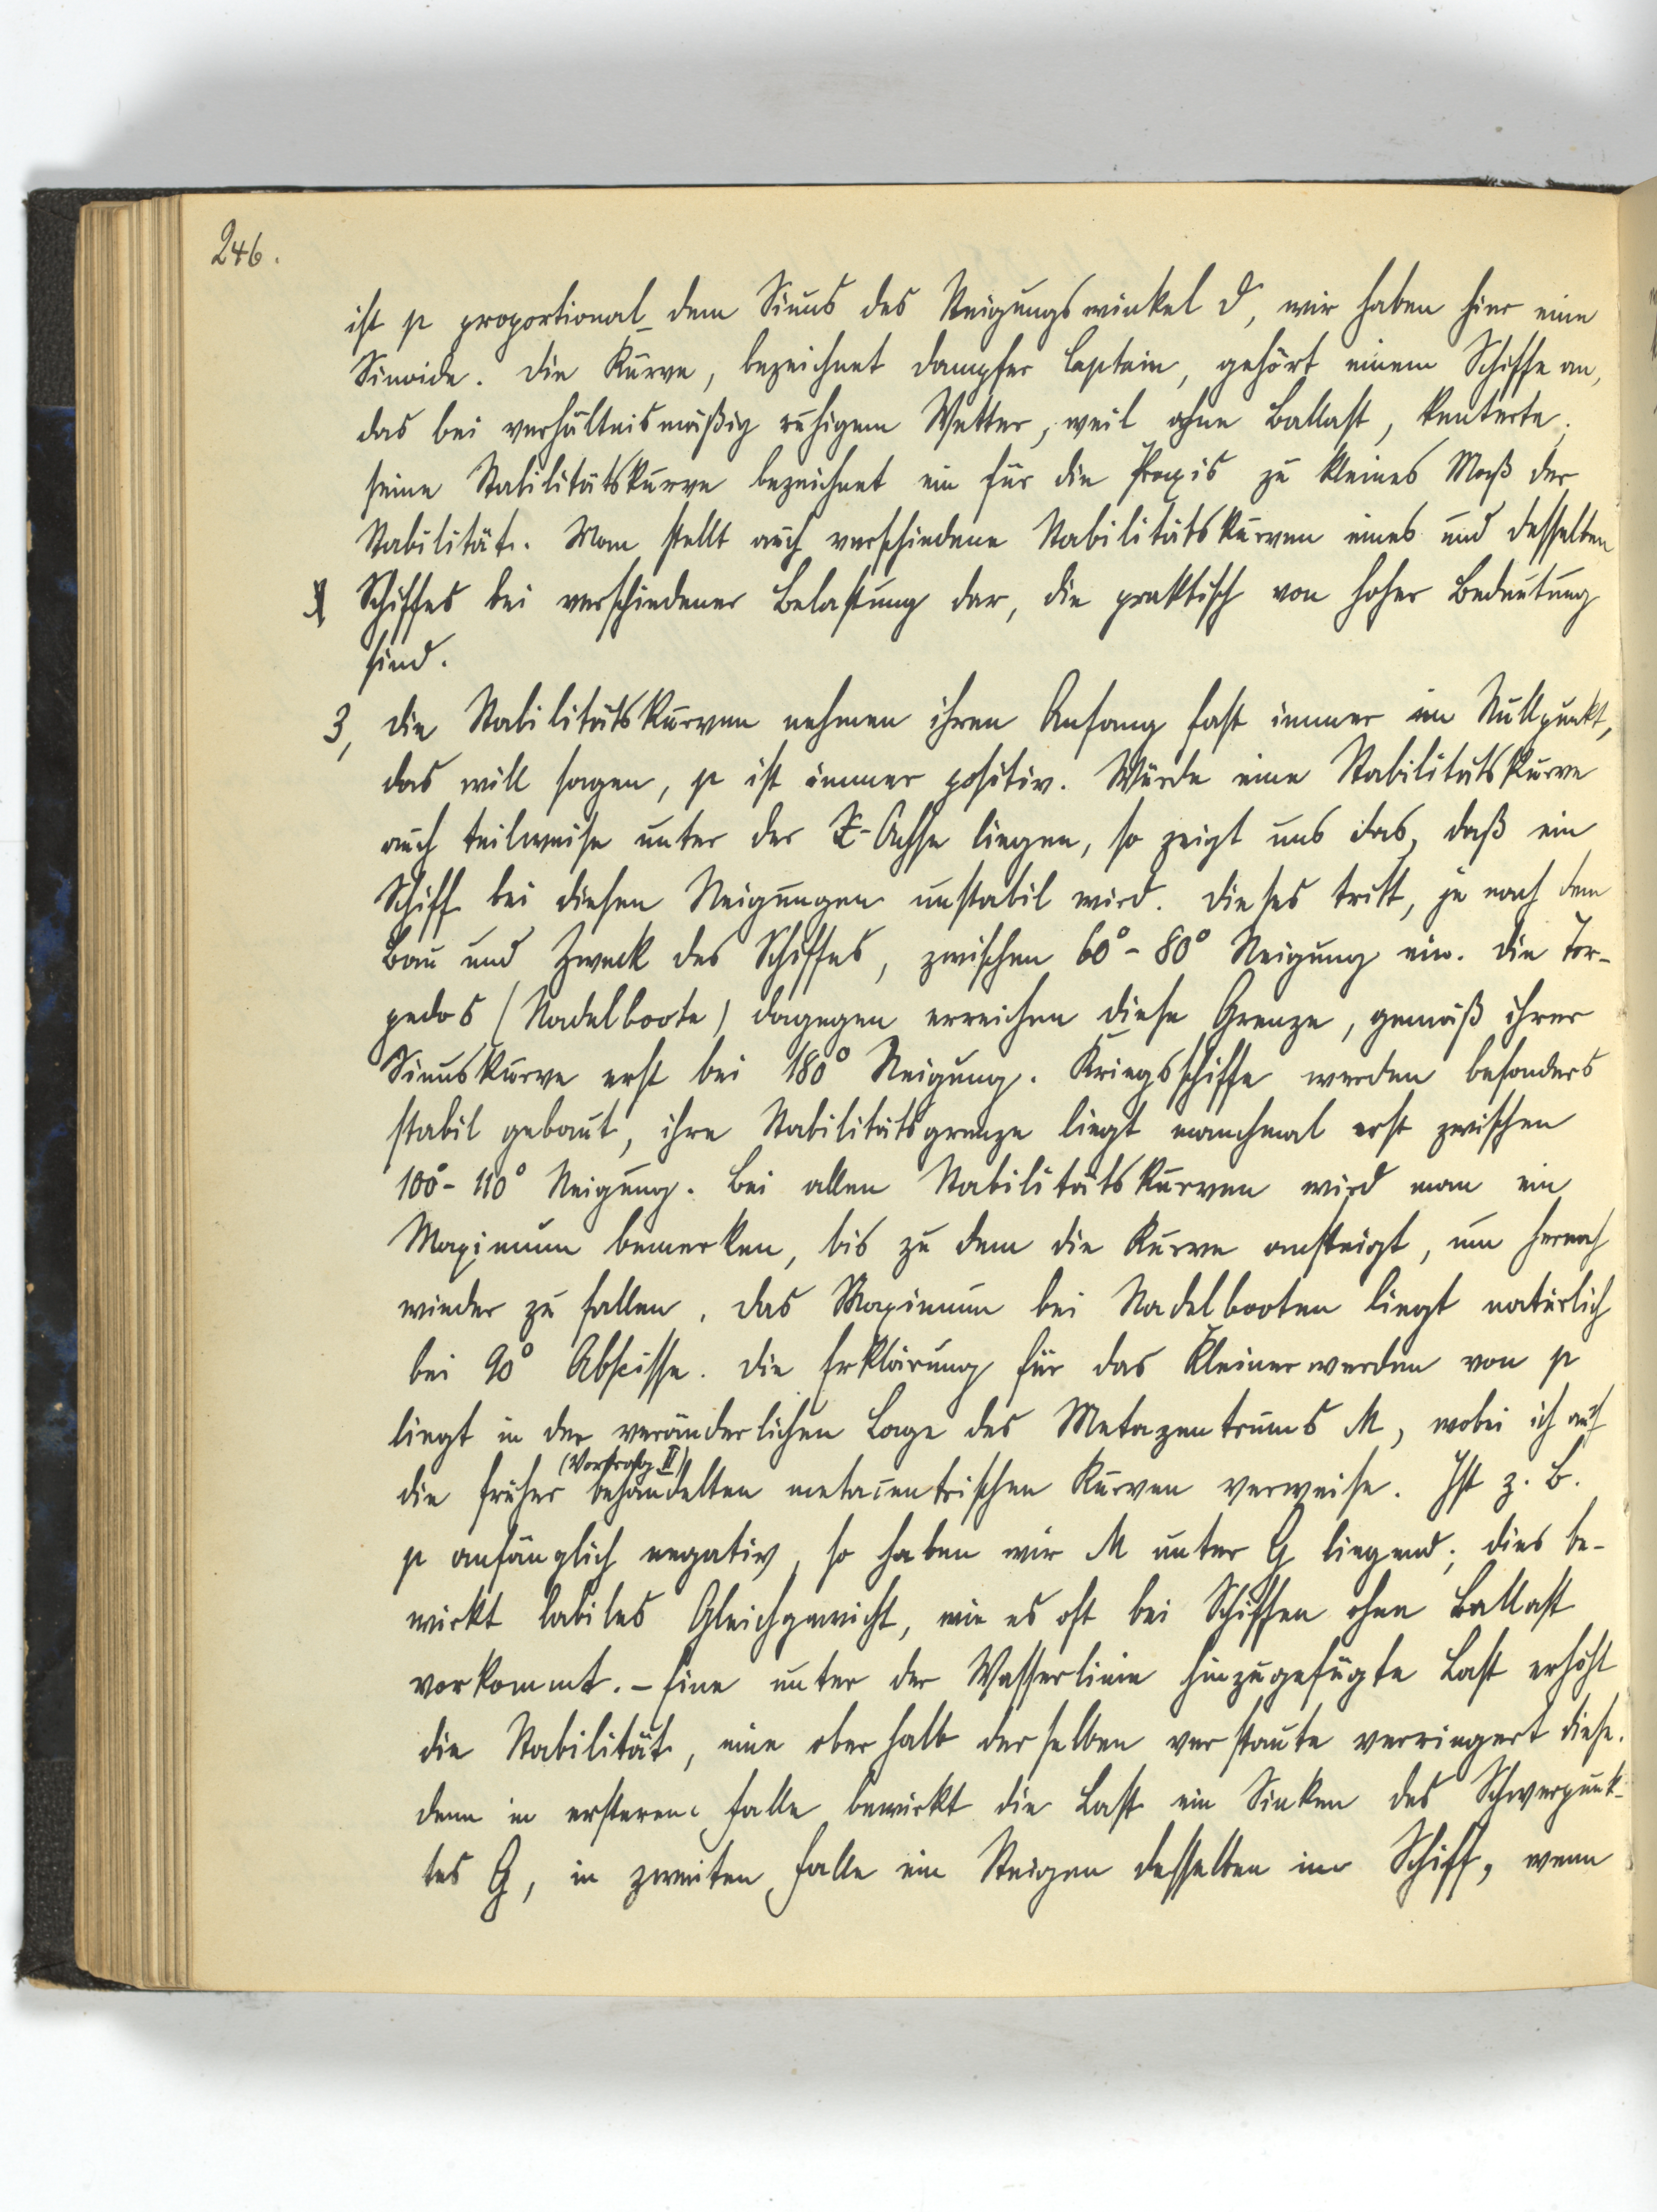 246.
ist p proportional dem Sinus des Neigungswinkel ϑ, wir haben hier eine
Sinoide. Die Kurve, bezeichnet Dampfer Captain, gehört einem Schiffe an,
das bei verhältnismäßig ruhigem Wetter, weil ohne Ballast, kenterte;
seine Stabilitätskurve bezeichnet ein für die Praxis zu kleines Maß der
Stabilität. Man stellt auch verschiedene Stabilitätskurven eines und desselben
Schiffes bei verschiedener Belastung dar, die praktisch von hoher Bedeutung
sind.
3, Die Stabilitätskurven nehmen ihren Anfang fast immer im Nullpunkt,
das will sagen, p ist immer positiv. Würde eine Stabilitätskurve
auch teilweise unter der X-Achse liegen, so zeigt uns das, daß ein
Schiff bei diesen Neigungen unstabil wird. Dieses tritt, je nach dem
Bau und Zweck des Schiffes, zwischen 60° - 80° Neigung ein. Die Tor-
pedos (Nadelboote) dagegen erreichen diese Grenze, gemäß ihrer
Sinuskurve erst bei 180° Neigung. Kriegsschiffe werden besonders
stabil gebaut, ihre Stabilitätsgrenze liegt manchmal erst zwischen
100° - 110° Neigung. Bei allen Stabilitätskurven wird man ein
Maximum bemerken, bis zu dem die Kurve ansteigt, um hernach
wieder zu fallen. Das Maximum bei Nadelbooten liegt natürlich
bei 90° Abscisse. Die Erklärung für das Kleinerwerden von p
liegt in der veränderlichen Lage des Metazentrums M, wobei ich auf
(Vortrag II)
die früher behandelten metacentrischen Kurven verweise. Ist z. B.
p anfänglich negativ, so haben wir M unter G liegend; dies be-
wirkt labiles Gleichgewicht, wie es oft bei Schiffen ohne Ballast
vorkommt. - Eine unter der Wasserlinie hinzugefügte Last erhöht
die Stabilität, eine oberhalb derselben verstaute verringert diese.
denn in ersterem Falle bewirkt die Last ein Sinken des Schwerpunk-
tes G, in zweiten Falle ein Steigen desselben im Schiff, wenn